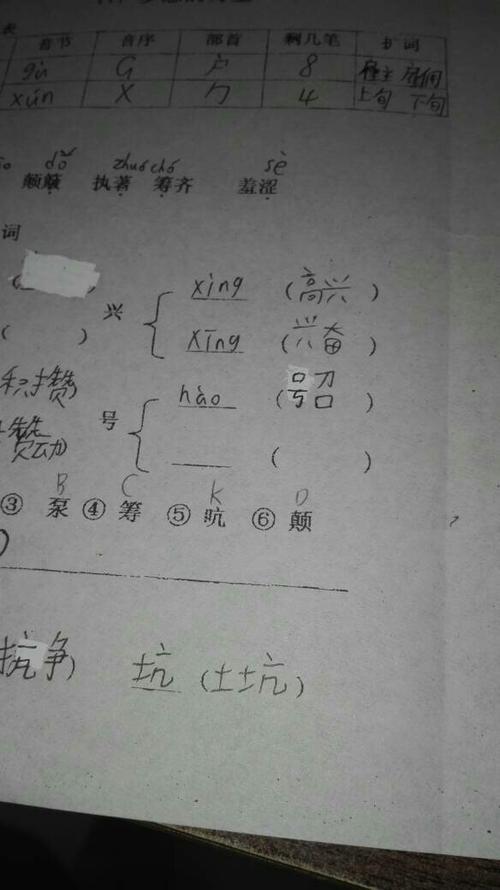 音节 音序 部首 剩几笔 扩词
gù G 户 8
xún X 勹 4 上旬 下旬
dǒ zhuó chó sè
颠簸 执著 筹齐 羞涩
词
( )
兴 xìng (高兴)
( )
xīng (兴奋)
积攒)
号 hào (号召)
攒动)
( )
B C K D
③ 泵 ④ 筹 ⑤ 吭 ⑥ 颠
)
抗争) 坑 (土坑)